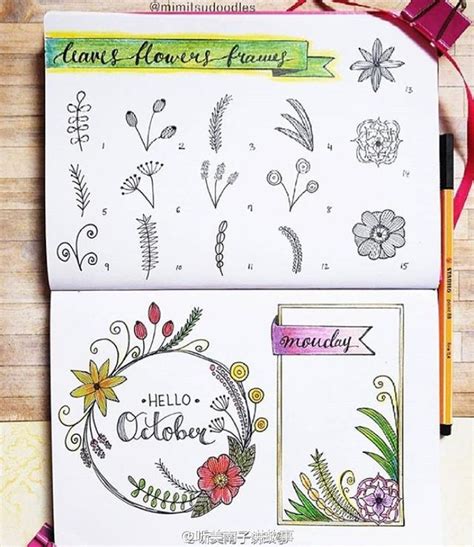 @mimitsudoodles
leaves flowers frames
13
1 2 3 4
14
5 6 7 8
9 10 11 12 15
STABILO
monday
HELLO
October